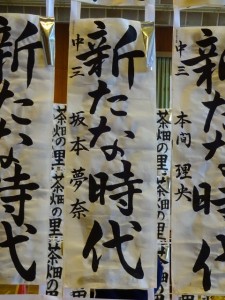 新たな時代
中三 本間 理央
新たな時代
中三 坂本 夢奈
新たな時代
茶畑の里
茶畑の里
茶畑の里
茶畑の里